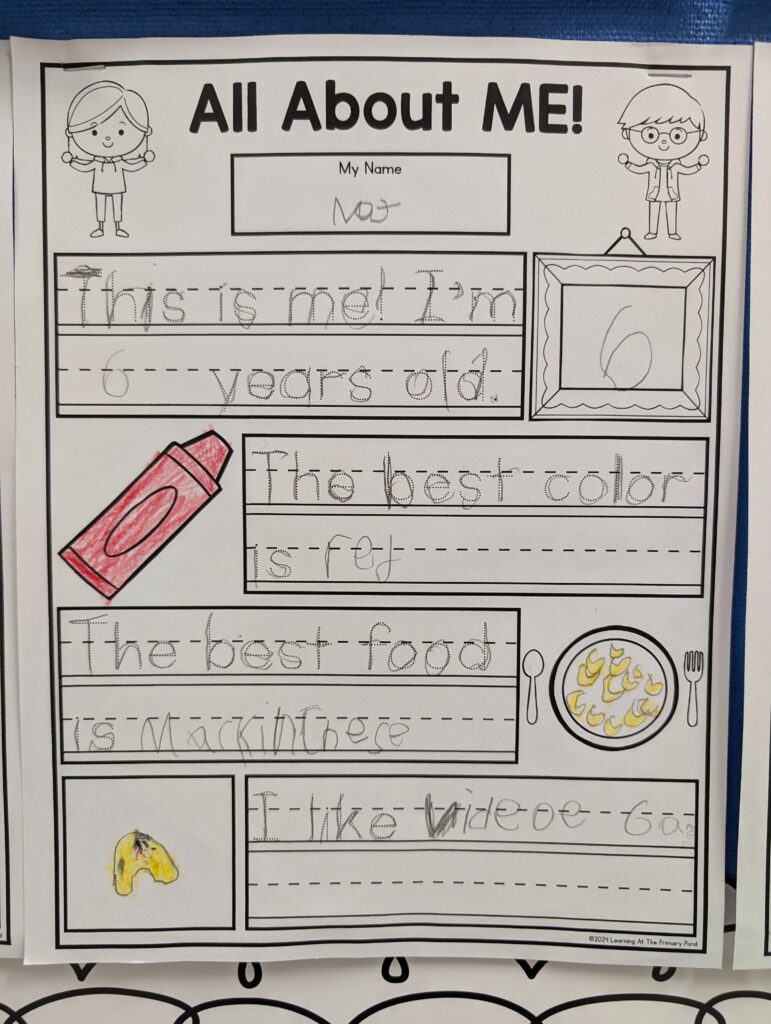 All About ME!
My Name
Nat
This is me! I'm
6 years old.
6
The best color
is red
The best food
is Mackinthese
I like videoe Ga
©2024 Learning At The Primary Pond